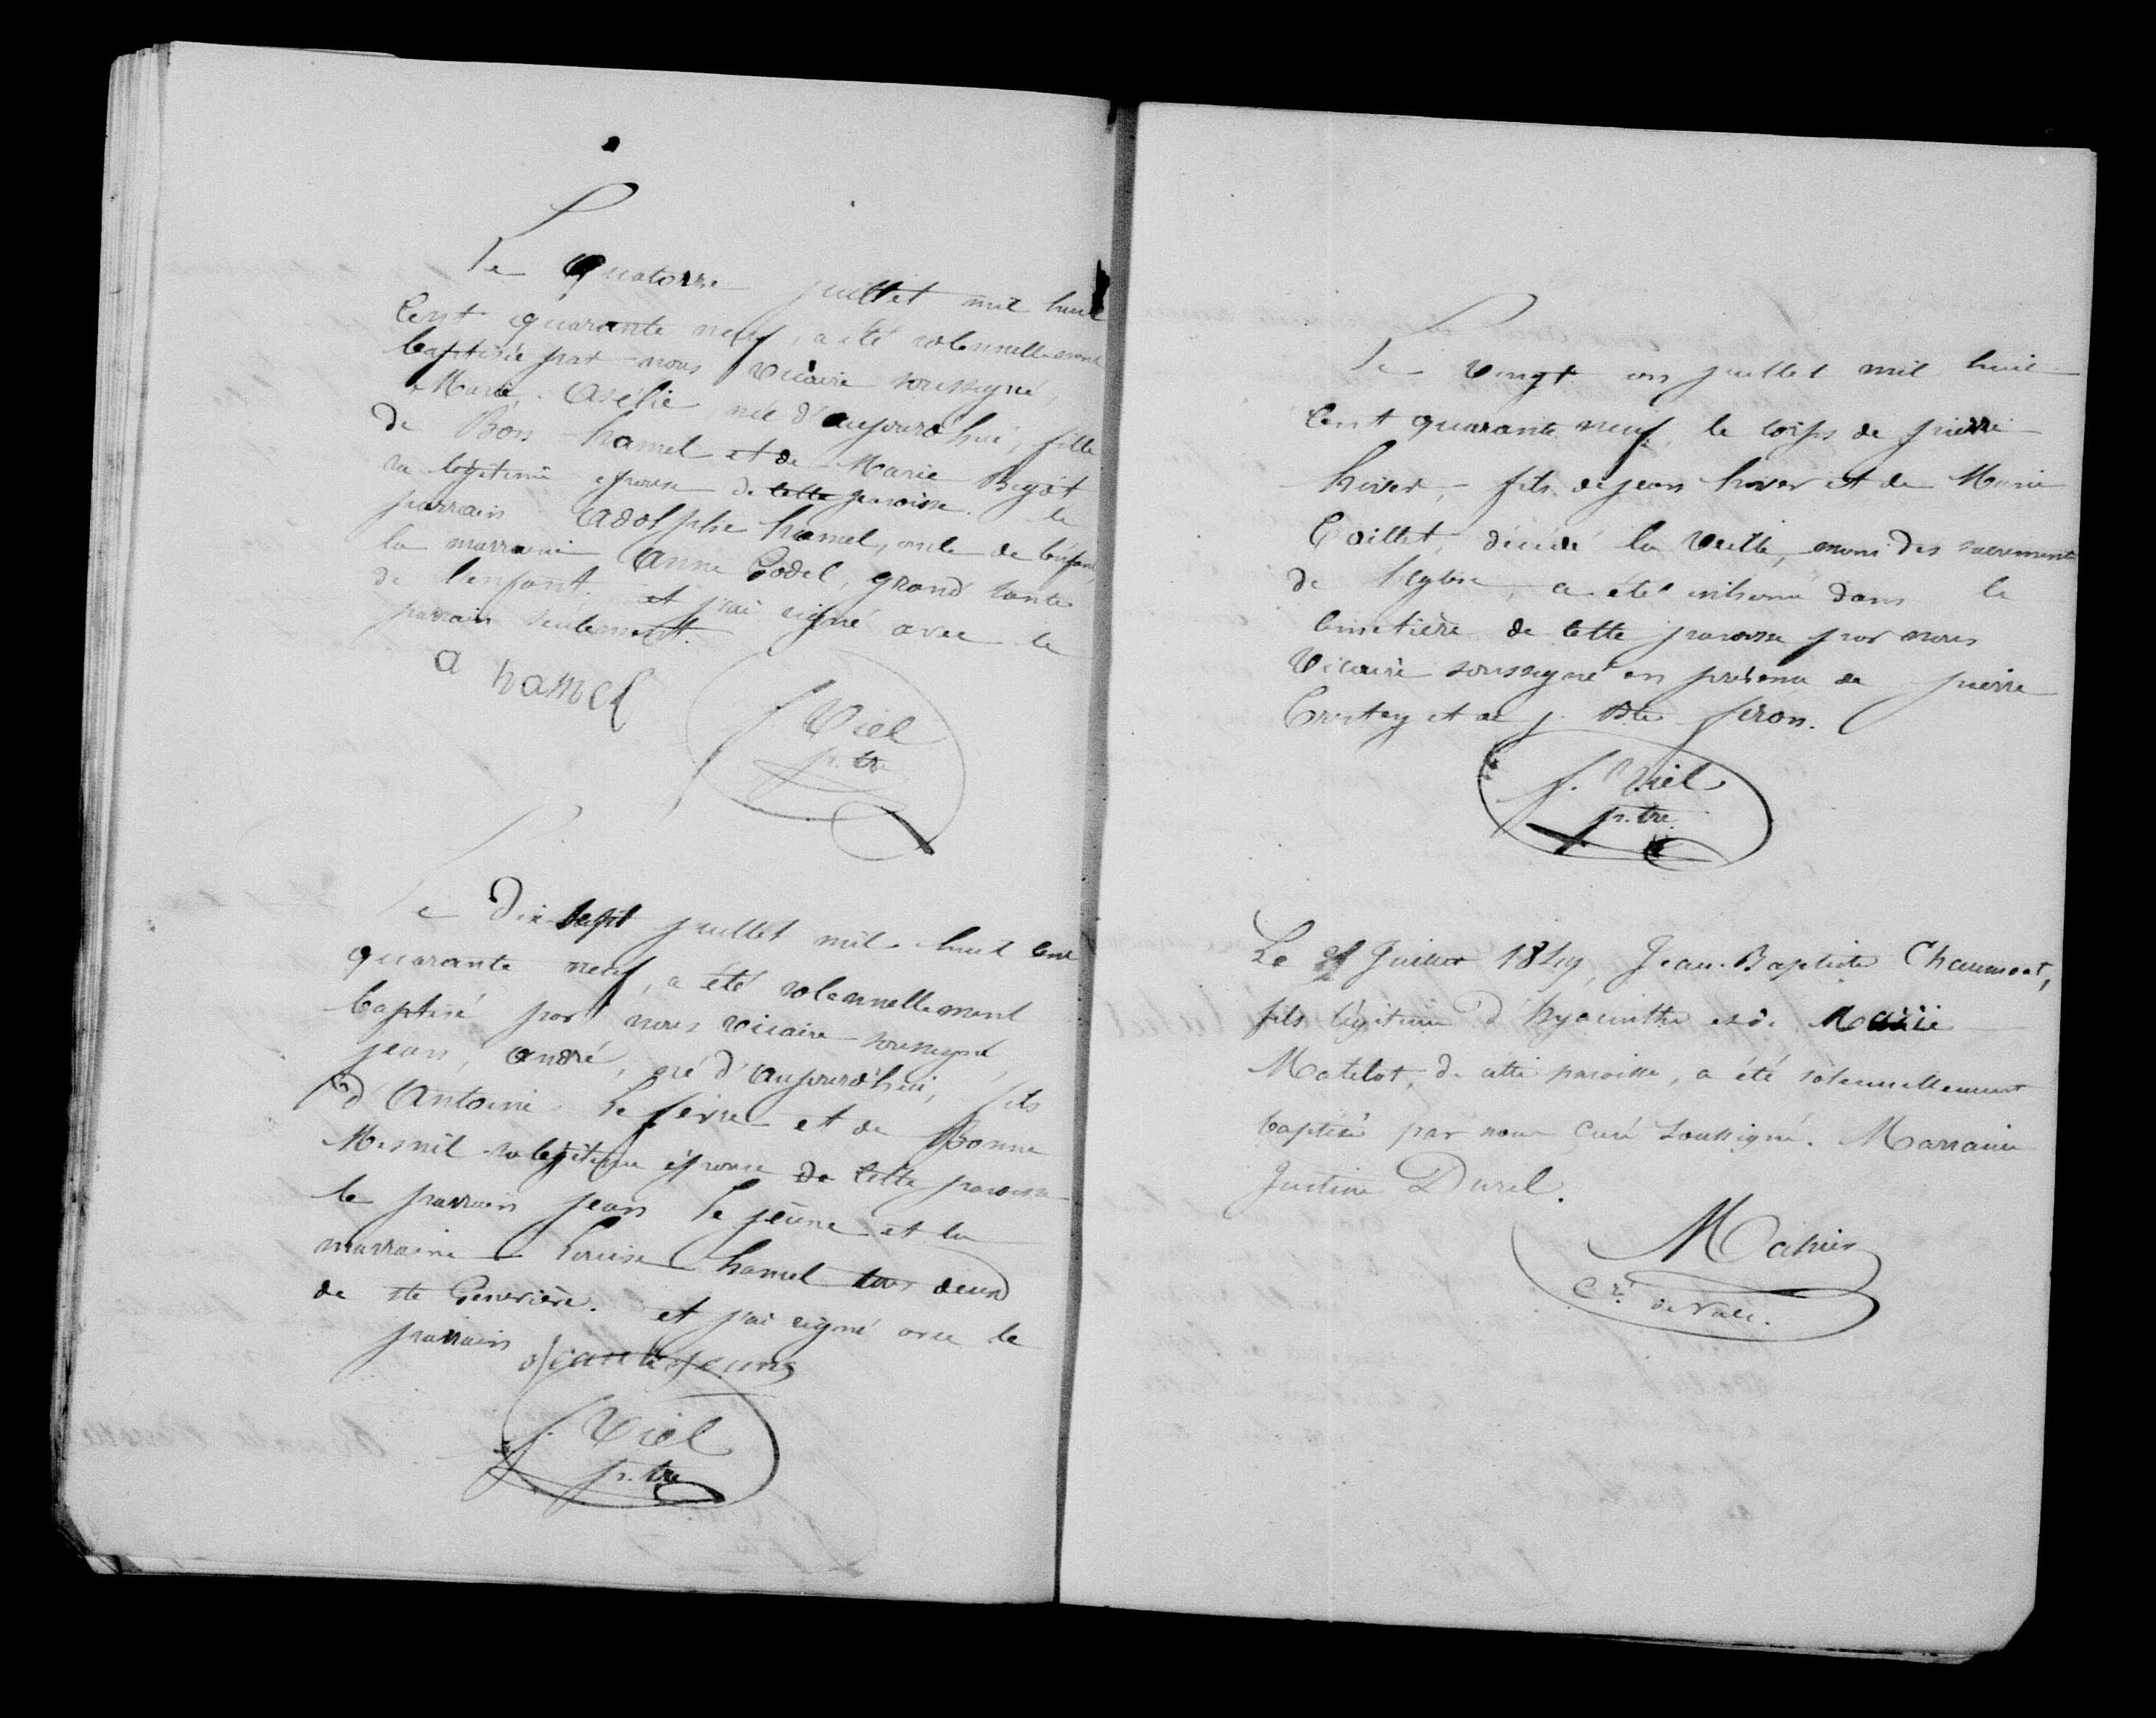 Le quatorze juillet mil huit
Cent quarante neuf, a été solennellement
baptisée par nous Vicaire soussigné,
Marie Asélie, née d'aujourd'hui, fille
de Bon hamel et de Marie Bigot
sa légitime épouse de cette paroisse. le
parrain Adolphe hamel, oncle de l'enfant,
la marraine Anne Godel, grand tante
de l'enfant. et j'ai signé avec le
parrain seulement.
a hamel
f. Viel
p.tre
Le Dix-sept juillet mil huit cent
quarante neuf, a été solennellement
baptisé par nous vicaire soussigné,
jean, andré, né d'aujourd'hui, fils
d'Antoine Le feivre et de Bonne
Mesnil sa légitime épouse de cette paroisse
le parrain jean le jeune et la
marraine Louise hamel tous deux
de ste Geneviève. et j'ai signé avec le
parrain
jean le jeune
f. Viel
p.tre
Le Vingt un juillet mil huit
Cent quarante neuf, le corps de pierre
hiver, fils de jean hiver et de Marie
Coillet, décédé la veille, muni des sacrements
de l'église, a été inhumé dans le
Cimetière de cette paroisse par nous
Vicaire soussigné en présence de pierre
Crestey et de j. Bte firon.
f. Viel
p.tre
Le Juillet 1849, Jean-Baptiste Chaumont,
fils légitime d'hyacinthe et de Marie
Matelot, de cette paroisse, a été solennellement
baptisé par nous curé soussigné. Marraine
Justine Durel.
Mahieu
Cré